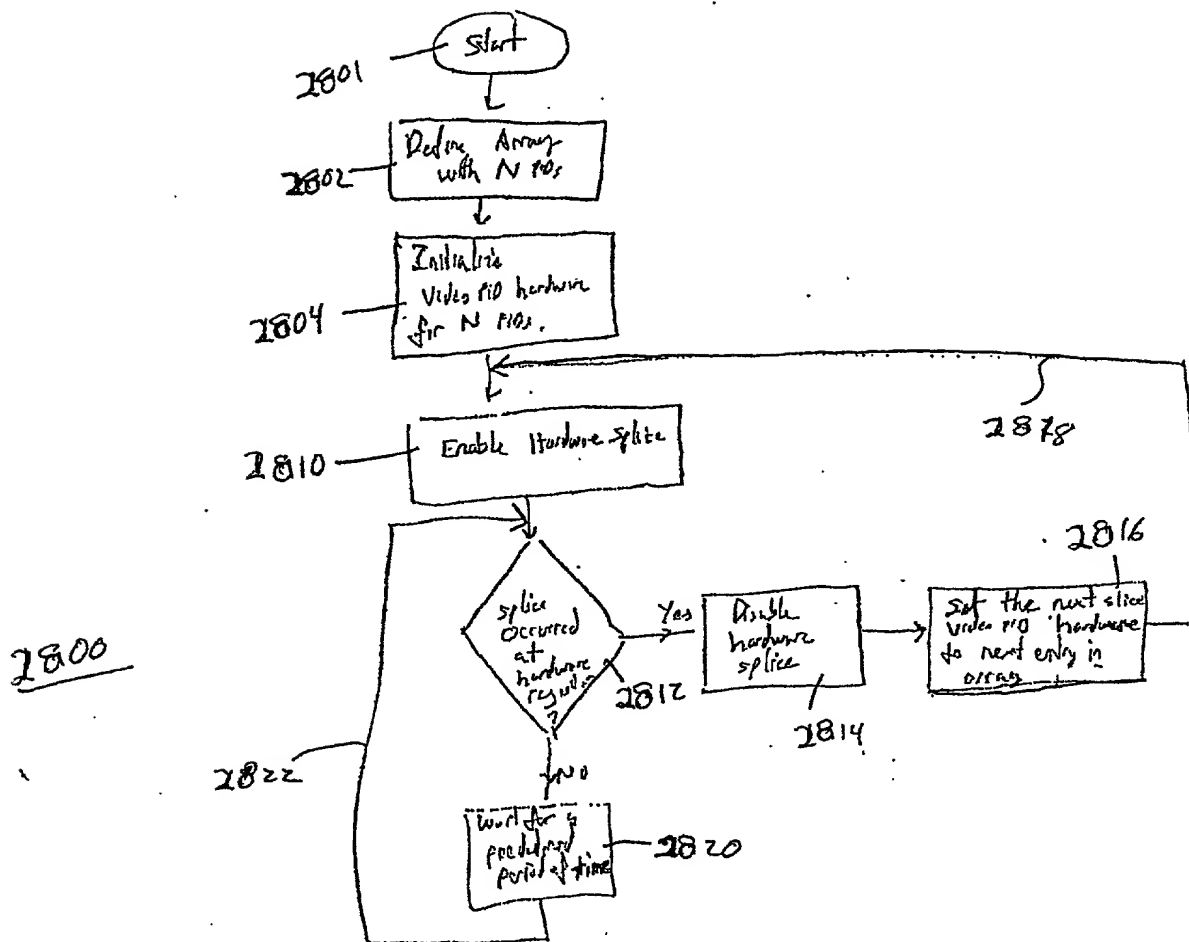 Start
2801
Define Array
with N PIDs
2802
Initialize
Video PID hardware
for N PIDs.
2804
2818
Enable Hardware Splice
2810
2816
splice
occurred
at
hardware
register
?
Yes
Disable
hardware
splice
Set the next slice
video PID hardware
to next entry in
array
2800
2812
2814
2822
NO
wait for a
predefined
period of time
2820